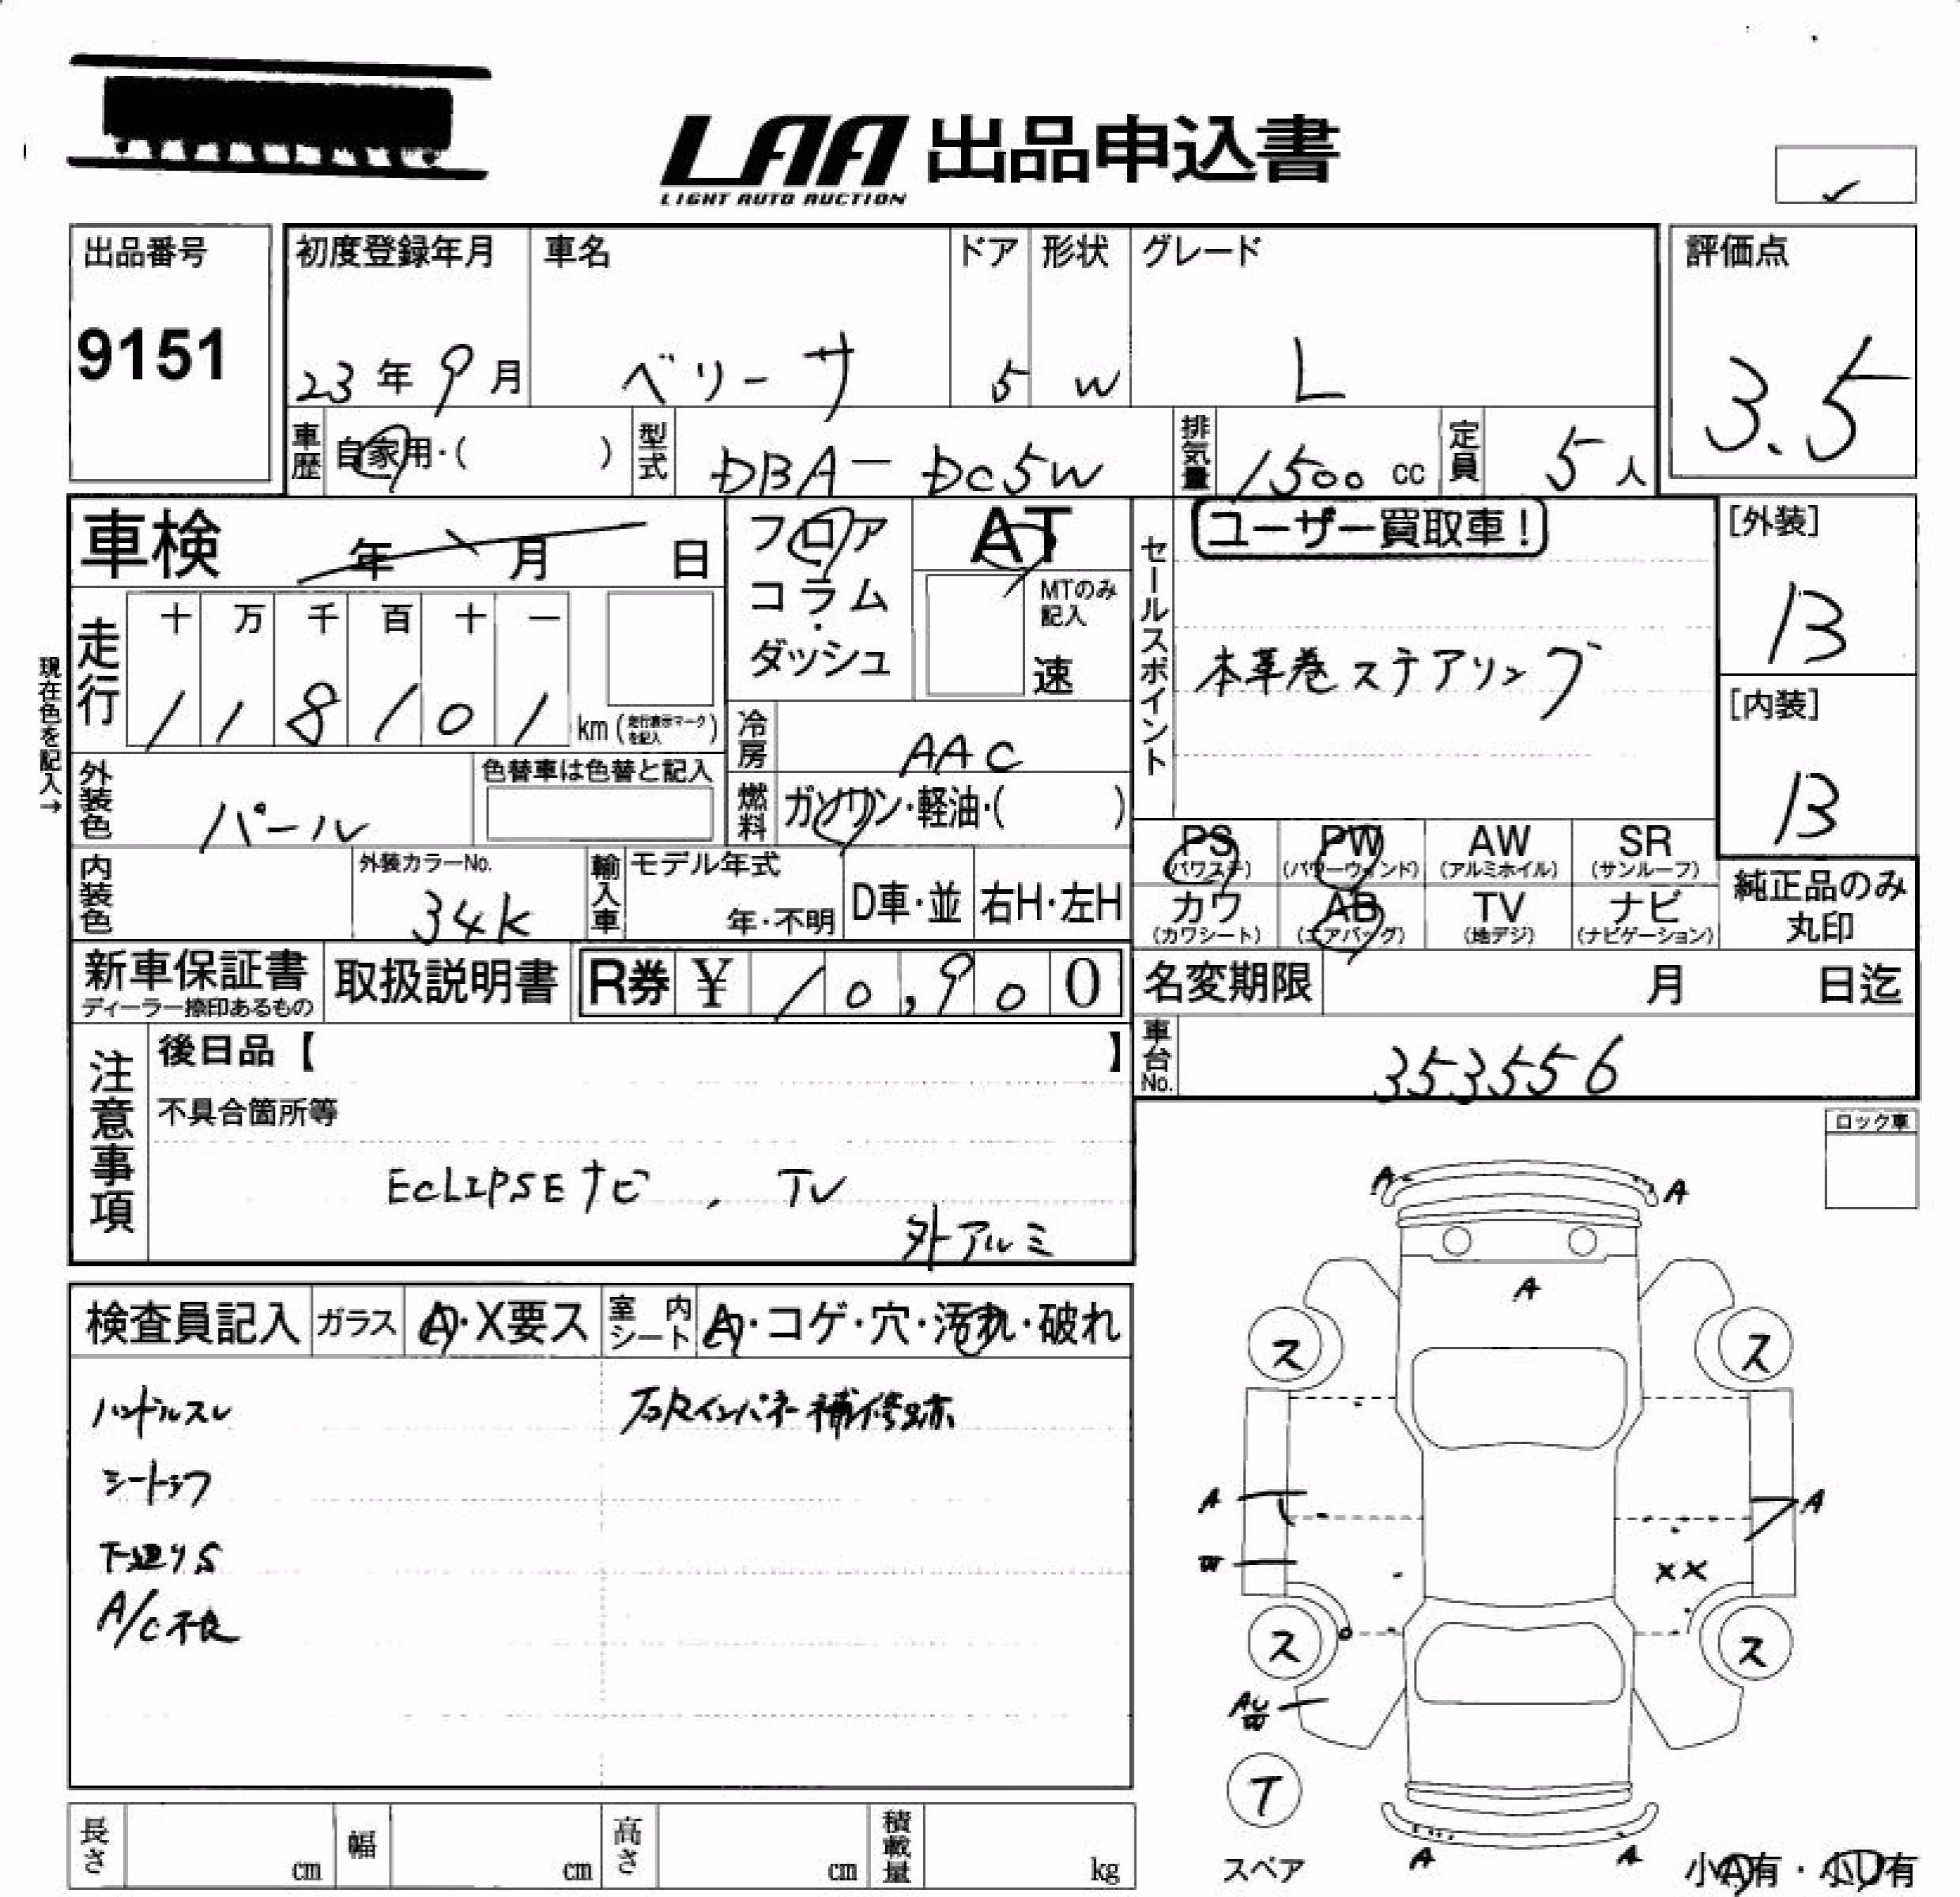 LAA 出品申込書
LIGHT AUTO AUCTION
出品番号
9151
初度登録年月
23年9月
車名
ベリーサ
ドア
5
形状
W
グレード
L
評価点
3.5
車歴
自家用・( )
型式
DBA-DC5W
排気量
1500 cc
定員
5人
車検 年 月 日
フロア
コラム
・
ダッシュ
AT
MTのみ
記入
速
セールスポイント
ユーザー買取車!
本革巻ステアリング
[外装]
B
[内装]
B
現在色を記入→
走行
十 万 千 百 十 一
1 1 8 1 0 1 km (走行表示マークを記入)
冷房
AAC
外装色
パール
色替車は色替と記入
燃料
ガソリン・軽油・( )
内装色
外装カラーNo.
34K
輸入車
モデル年式
年・不明
D車・並
右H・左H
PS
(パワステ)
PW
(パワーウィンド)
AW
(アルミホイル)
SR
(サンルーフ)
カワ
(カワシート)
AB
(エアバッグ)
TV
(地デジ)
ナビ
(ナビゲーション)
純正品のみ
丸印
新車保証書
ディーラー捺印あるもの
取扱説明書
R券 ¥ 10,900
名変期限 月 日迄
車台No.
353556
注意事項
後日品【 】
不具合箇所等
ECLIPSEナビ , TV
外アルミ
ロック車
検査員記入
ガラス
A・X要ス
室内シート
A・コゲ・穴・汚れ・破れ
ハンドルスレ
シートシワ
下廻りS
A/C不良
右Rインパネー補修跡
A
A
A
ス
ス
A
A
W
XX
ス
ス
T
スペア
A
A
小A有・小U有
長さ cm
幅 cm
高さ cm
積載量 kg